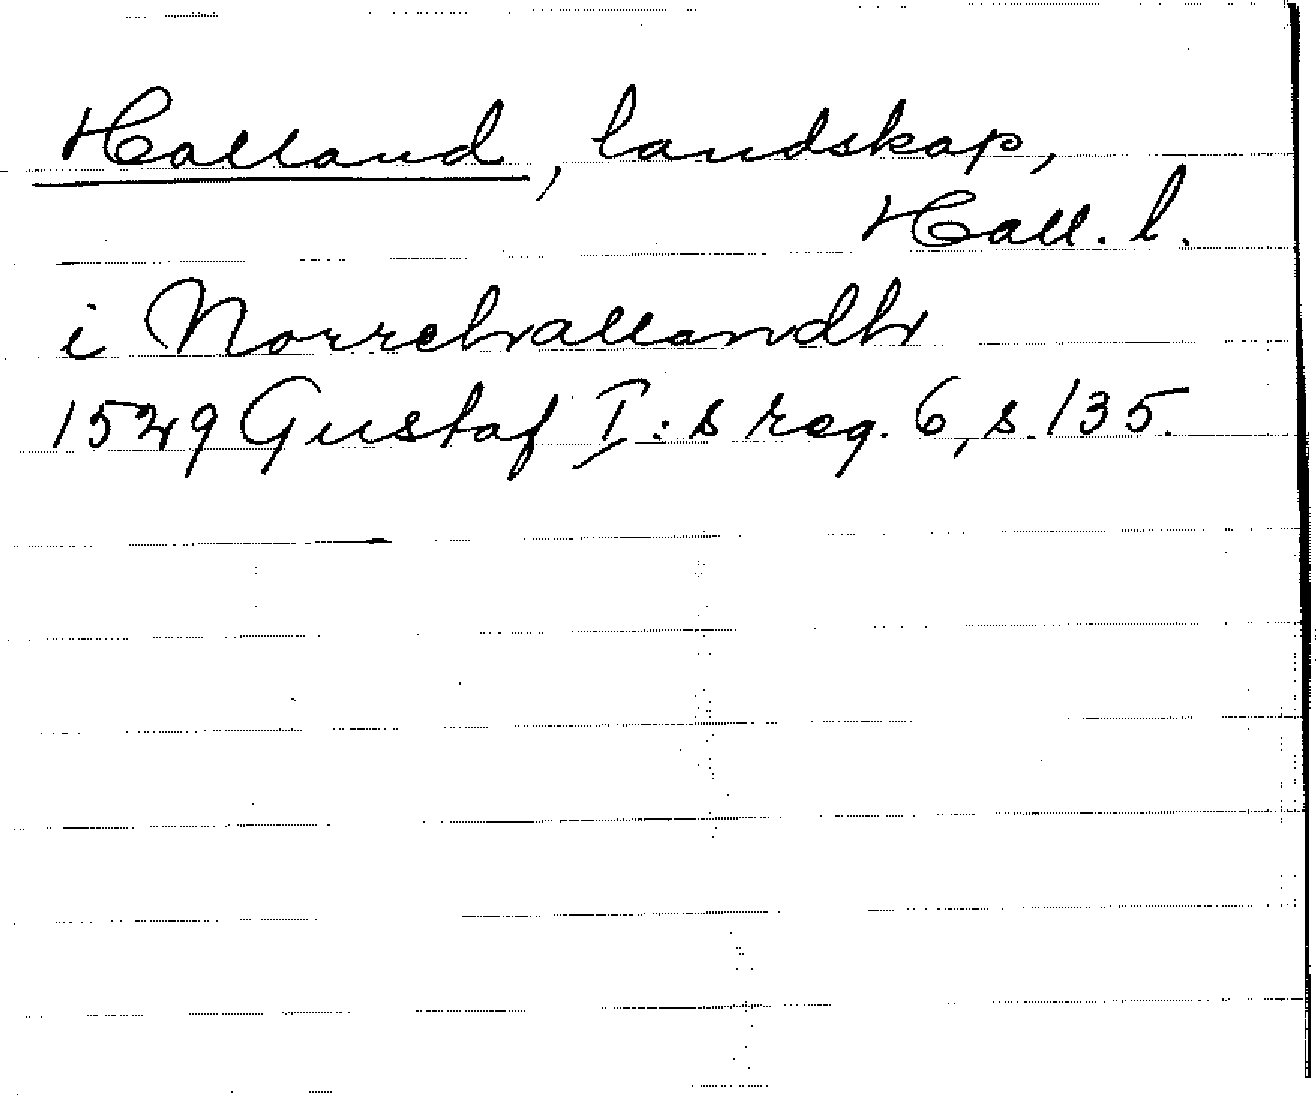 Halland, landskap,
Hall. l.
i Norrehallandh
1529 Gustaf I:s reg. 6, s. 135.